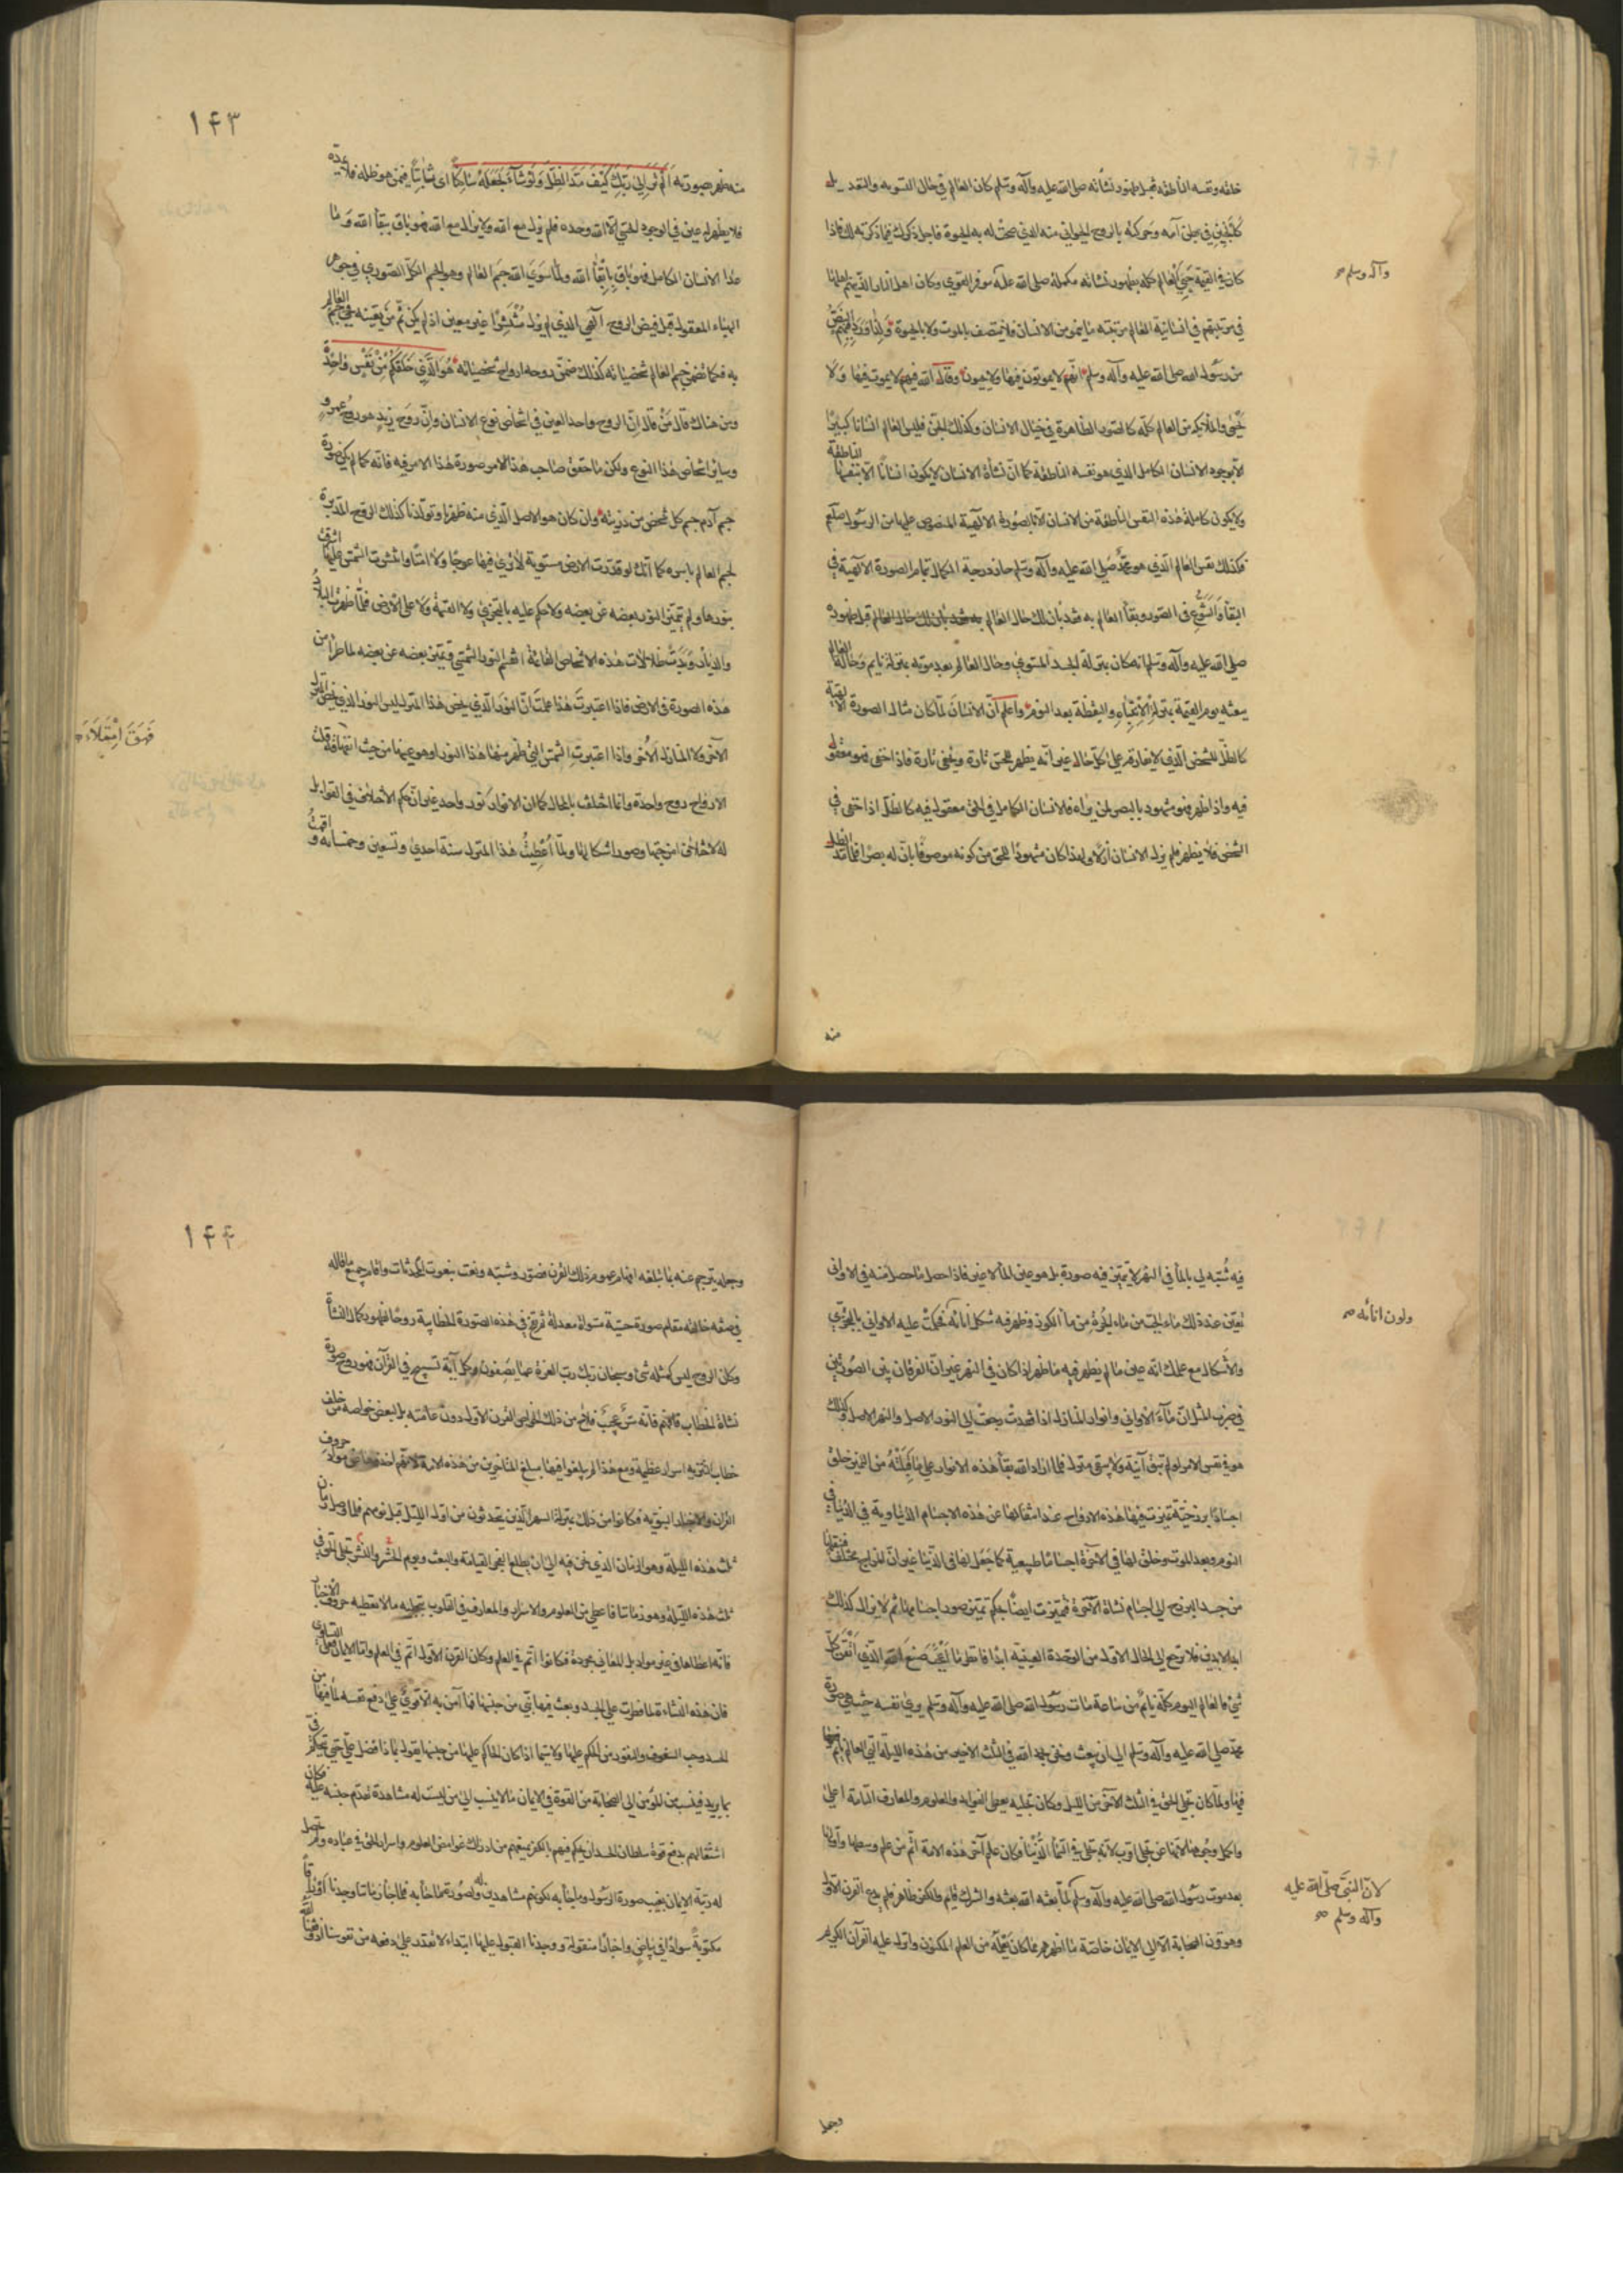 خلقه ونفسه الناطقة قبل ظهور نشأته صلى الله عليه وآله وسلم كان العالم في حال التسوية والتعديل
كالجنين في بطن أمه وحركته بالروح الحيواني منه الذي صحت له به الحيوة فاجل ذكرك فيما ذكرته لك فاذا
كان في القيمة حيي العالم كله بظهور نشأته مكملة صلى الله عليه موفر القوي وكان اهل النار الذين هم اهلها
وآله وسلم صح
في مرتبتهم في انسانية العالم مرتبة ما ينمو من الانسان فلا يتصف بالموت ولا بالحيوة ولذا ورد فيهم النص
من رسول الله صلى الله عليه وآله وسلم انهم لا يموتون فيها ولا يحيون وقال الله فيهم لا يموت فيها ولا
يحيى والملائكة من العالم كله كالصور الظاهرة في خيال الانسان وكذلك الجن فليس العالم انسانا كبيرا
الا بوجود الانسان الكامل الذي هو نفسه الناطقة كما ان نشأة الانسان لا يكون انسانا الا بنفسها الناطقة
ولا يكون كاملة هذه النفس الناطقة من الانسان الا بالصورة الالهية المنصوص عليها من الرسول صلعم
فكذلك نفس العالم الذي هو محمد صلى الله عليه وآله وسلم حاز درجة الكمال بتمام الصورة الالهية في
البقا والتنوع في الصور وبقا العالم به فقد بان لك حال العالم قبل ظهوره
صلى الله عليه وآله وسلم انه كان بمنزلة الجسد المستوي وحال العالم بعد موته بمنزلة نايم وحالة العالم
ببعثه يوم القيمة بمنزلة الانتباه واليقظة بعد النوم واعلم ان الانسان لما كان مثال الصورة الالهية
كالظل للشخص الذي لا يفارقه على كل حال غير انه يظهر للحس تارة ويخفى تارة فاذا خفى فهو معقول
فيه واذا ظهر فهو مشهود بالبصر لمن يراه فالانسان الكامل في الحق معقول فيه كالظل اذا خفى في
الشخص فلا يظهر فلم يزل الانسان ازلا ولهذا كان مشهودا للحق من كونه موصوفا بان له بصرا فلما مد الظل
منه
۱۴۳
منه ظهر بصورته الم تر الى ربك كيف مد الظل ولو شاء لجعله ساكنا اى ثابتا فيمن هو ظله فلا يمده
فلا يظهر له عين في الوجود الحسي الا الله وحده فلم يزل مع الله ولا يزال مع الله فهو باق ببقا الله وما
عدا الانسان الكامل فهو باق بابقاء الله ولما سوى الله جسم العالم وهو الجسم الكل الصوري في جوهر
الهباء المعقول قبل فيض الروح الالهي الذي لم يزل منتشرا غير معين اذ لم يكن ثم من يعينه فحيي جسم العالم
به فكما تضمن جسم العالم شخصياته كذلك ضمن روحه ارواح شخصياته هو الذي خلقكم من نفس واحدة
ومن هناك قال من قال ان الروح واحد العين في اشخاص نوع الانسان وان روح زيد هو روح عمرو
وساير اشخاص هذا النوع ولكن ما حقق صاحب هذا الامر صورة هذا الامر فيه فانه كما لم يكن صورة
جسم آدم جسم كل شخص من ذريته وان كان هو الاصل الذي منه ظهرنا وتولدنا كذلك الروح المدبرة
لجسم العالم باسره كما انك لو قدرت الارض مستوية لا ترى فيها عوجا ولا امتا وانتشرت الشمس عليها اشرقت
بنورها ولم يتميز النور بعضه عن بعضه ولا حكم عليه بالتجزي ولا القسمة ولا على الارض فلما ظهرت البلاد
والديار وبدت ظلالات هذه الاشخاص القائمة انقسم النور الشمسي وتميز بعضه عن بعضه لما طرأ من
هذه الصورة في الارض فاذا اعتبرت هذا علمت ان النور الذي يخص هذا المنزل ليس النور الذي يخص المنزل
الآخر ولا المنازل الآخر واذا اعتبرت الشمس التي ظهر منها هذا النور وهو عينها من حيث انفهاقه قلت
فهق امتلاء
الارواح روح واحدة وانما اختلف بالمحال كما ان الانوار كنور واحد غير ان حكم الاختلاف في القوابل
له لاختلاف امزجتها وصور اشكالها ولما اعطيت هذا المنزل سنة احدى وتسعين وخمسمائة و اقمت
فيه شبه لي بالماء في النهر لا يتميز فيه صورة بل هو عين الماء لا غير فاذا حصل ما حصل منه في الاواني
تعين عند ذلك ماء الجب من ماء الجرة من ماء الكوز وظهر فيه شكل انائه فحكمت عليه الاواني بالتجزي
ولون انائه صح
والاشكال مع علمك انه عين ما لم يظهر فيه ما ظهر اذا كان في النهر غير ان الفرقان بين الصورتين
في ضرب المثل ان ماء الاواني وانوار المنازل اذا فقدت رجعت الى النور الاصل والنهر الاصل وكذلك
هو في نفس الامر لو لم تبق آنية ولا يبقى منزل فلما اراد الله بقاء هذه الانوار على ما قبلته من التميز خلق
اجسادا برزخية تميزت فيها هذه الارواح عند انتقالها عن هذه الاجسام الدنياوية في الدنيا في
النوم وبعد الموت وخلق لها في الآخرة اجساما طبيعية كما جعل لها في الدنيا غير ان المزاج مختلف فنقلها
من جسد البرزخ الى اجسام نشاة الآخرة فتميزت ايضا بحكم تميز صور اجسامها ثم لا يزال كذلك
ابد الابدين فلا ترجع الى الحال الاول من الوحدة العينية ابدا فانظر ما اعجب صنع الله الذي اتقن كل
شيء فالعالم اليوم كله نايم من ساعة مات رسول الله صلى الله عليه وآله وسلم يرى نفسه حيث هي صورة
محمد صلى الله عليه وآله وسلم الى ان يبعث ونحن بحمد الله في الثلث الاخير من هذه الليلة التي العالم نايم فيها
ولما كان تجلي الحق في الثلث الآخر من الليل وكان تجليه يعطي الفوايد والعلوم والمعارف التامة على
اكمل وجوهها لانها عن تجلي اقرب لانه تجلى في السماء الدنيا فكان علم آخر هذه الامة اتم من علم وسطها واولها
بعد موت رسول الله صلى الله عليه وآله وسلم لما بعثه الله بعثه والشرك قايم والكفر ظاهر فلم يدع القرن الاول
لان النبي صلى الله عليه
وآله وسلم صح
وهو قرن الصحابة الا الى الايمان خاصة ما اظهر لهم مما كان يعلمه من العلم المكنون وانزل عليه القرآن الكريم
وجعل
۱۴۴
وجعله يترجم عنه بما يبلغه افهام عموم ذلك القرن فصور وشبه ونعت بنعوت المحدثات واقام جميع ما قاله
في صفه خالقه مقام صورة حسية مسواة معدلة ثم نفخ في هذه الصورة الخطابية روحا لظهور كمال النشأة
وكان الروح ليس كمثله شئ وسبحان ربك رب العزة عما يصفون وكل آية تسبيح في القرآن فهو روح صورة
نشاة الخطاب فافهم فانه سر عجيب فلاح من ذلك لخواص القرن الاول دون عامته بل لبعض خواصه من خلف
خطاب التنزيه اسرار عظيمة ومع هذا لم يبلغوا فيها مبلغ المتاخرين من هذه الامة لانهم اخذوها من مواد حروف
القرآن والاخبار النبوية فكانوا من ذلك بمنزلة اهل السمر الذين يتحدثون من اول الليل قبل نومهم فلما وصل زمان
ثلث هذه الليلة وهو الزمان الذي نحن فيه الى ان يطلع الفجر القيامة والبعث ويوم الحشر والنشر تجلى الحق في
ثلث هذه الليلة وهو زماننا فاعطى من العلوم والاسرار والمعارف في القلوب بتجليه ما لا تعطيه حروف الاخبار
فانه اعطاها في غير مواد بل المعاني مجردة فكانوا اتم في العلم وكان القرن الاول اتم في العمل واما الايمان فعلى التساوي
فان هذه النشاءة لما فطرت على الحسد وبعث فيها نبي من جنسها فما آمن به الا قوى على دفع نفسه لما فيها من
الحسد وحب التفوق والنفور من الحكم عليها ولا سيما اذا كان الحاكم عليها من جنسها يقول بماذا فضل علي حتى يتحكم في
بما يريد فينسب من المؤمن الى الصحابة من القوة في الايمان ما لا ينسب الى من ليست له مشاهدة تقدم جنسه عليه فكان
اشتغالهم بدفع قوة سلطان الحسد ان يحكم فيهم بالكفر يمنعهم من ادراك غوامض العلوم واسرار الحق في عباده ولم يحصل
له رتبة الايمان بغيب صورة الرسول وما جاء به لكونهم مشاهدين له ولصورة ما جاء به فلما جاء زماننا ووجدنا اوراقا
مكتوبة سوادا في بياض واخبارا منقولة ووجدنا القبول عليها ابتداء لا نقدر على دفعه من نفوسنا رزقنا الله